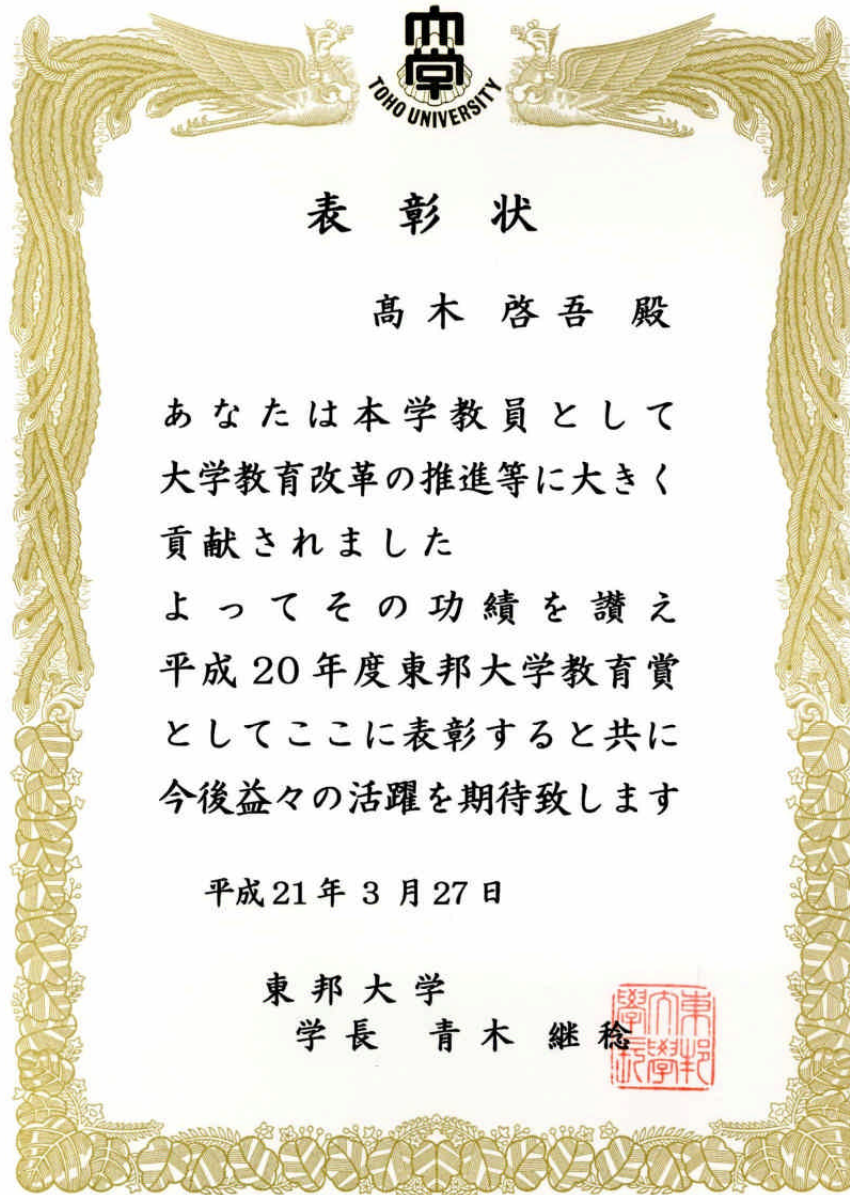 大学
TOHO UNIVERSITY
表彰状
髙木 啓吾 殿
あなたは本学教員として
大学教育改革の推進等に大きく
貢献されました
よってその功績を讃え
平成20年度東邦大学教育賞
としてここに表彰すると共に
今後益々の活躍を期待致します
平成21年3月27日
東邦大学
学長 青木 継稔
東邦大學學長